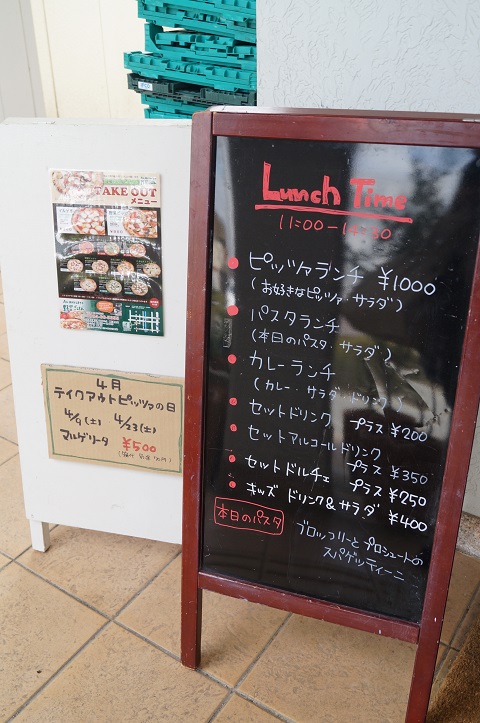 TAKE OUT
メニュー
4月
テイクアウトピッツァの日
4/9(土) 4/23(土)
マルゲリータ ¥500
Lunch Time
11:00-14:30
ピッツァランチ ¥1000
(お好きなピッツァ・サラダ)
パスタランチ
(本日のパスタ・サラダ)
カレーランチ
(カレー・サラダ・ドリンク)
セットドリンク プラス ¥200
セットアルコールドリンク
プラス ¥350
セットドルチェ プラス ¥250
キッズ ドリンク&サラダ ¥400
本日のパスタ
ブロッコリーとプロシュートの
スパゲッティーニ